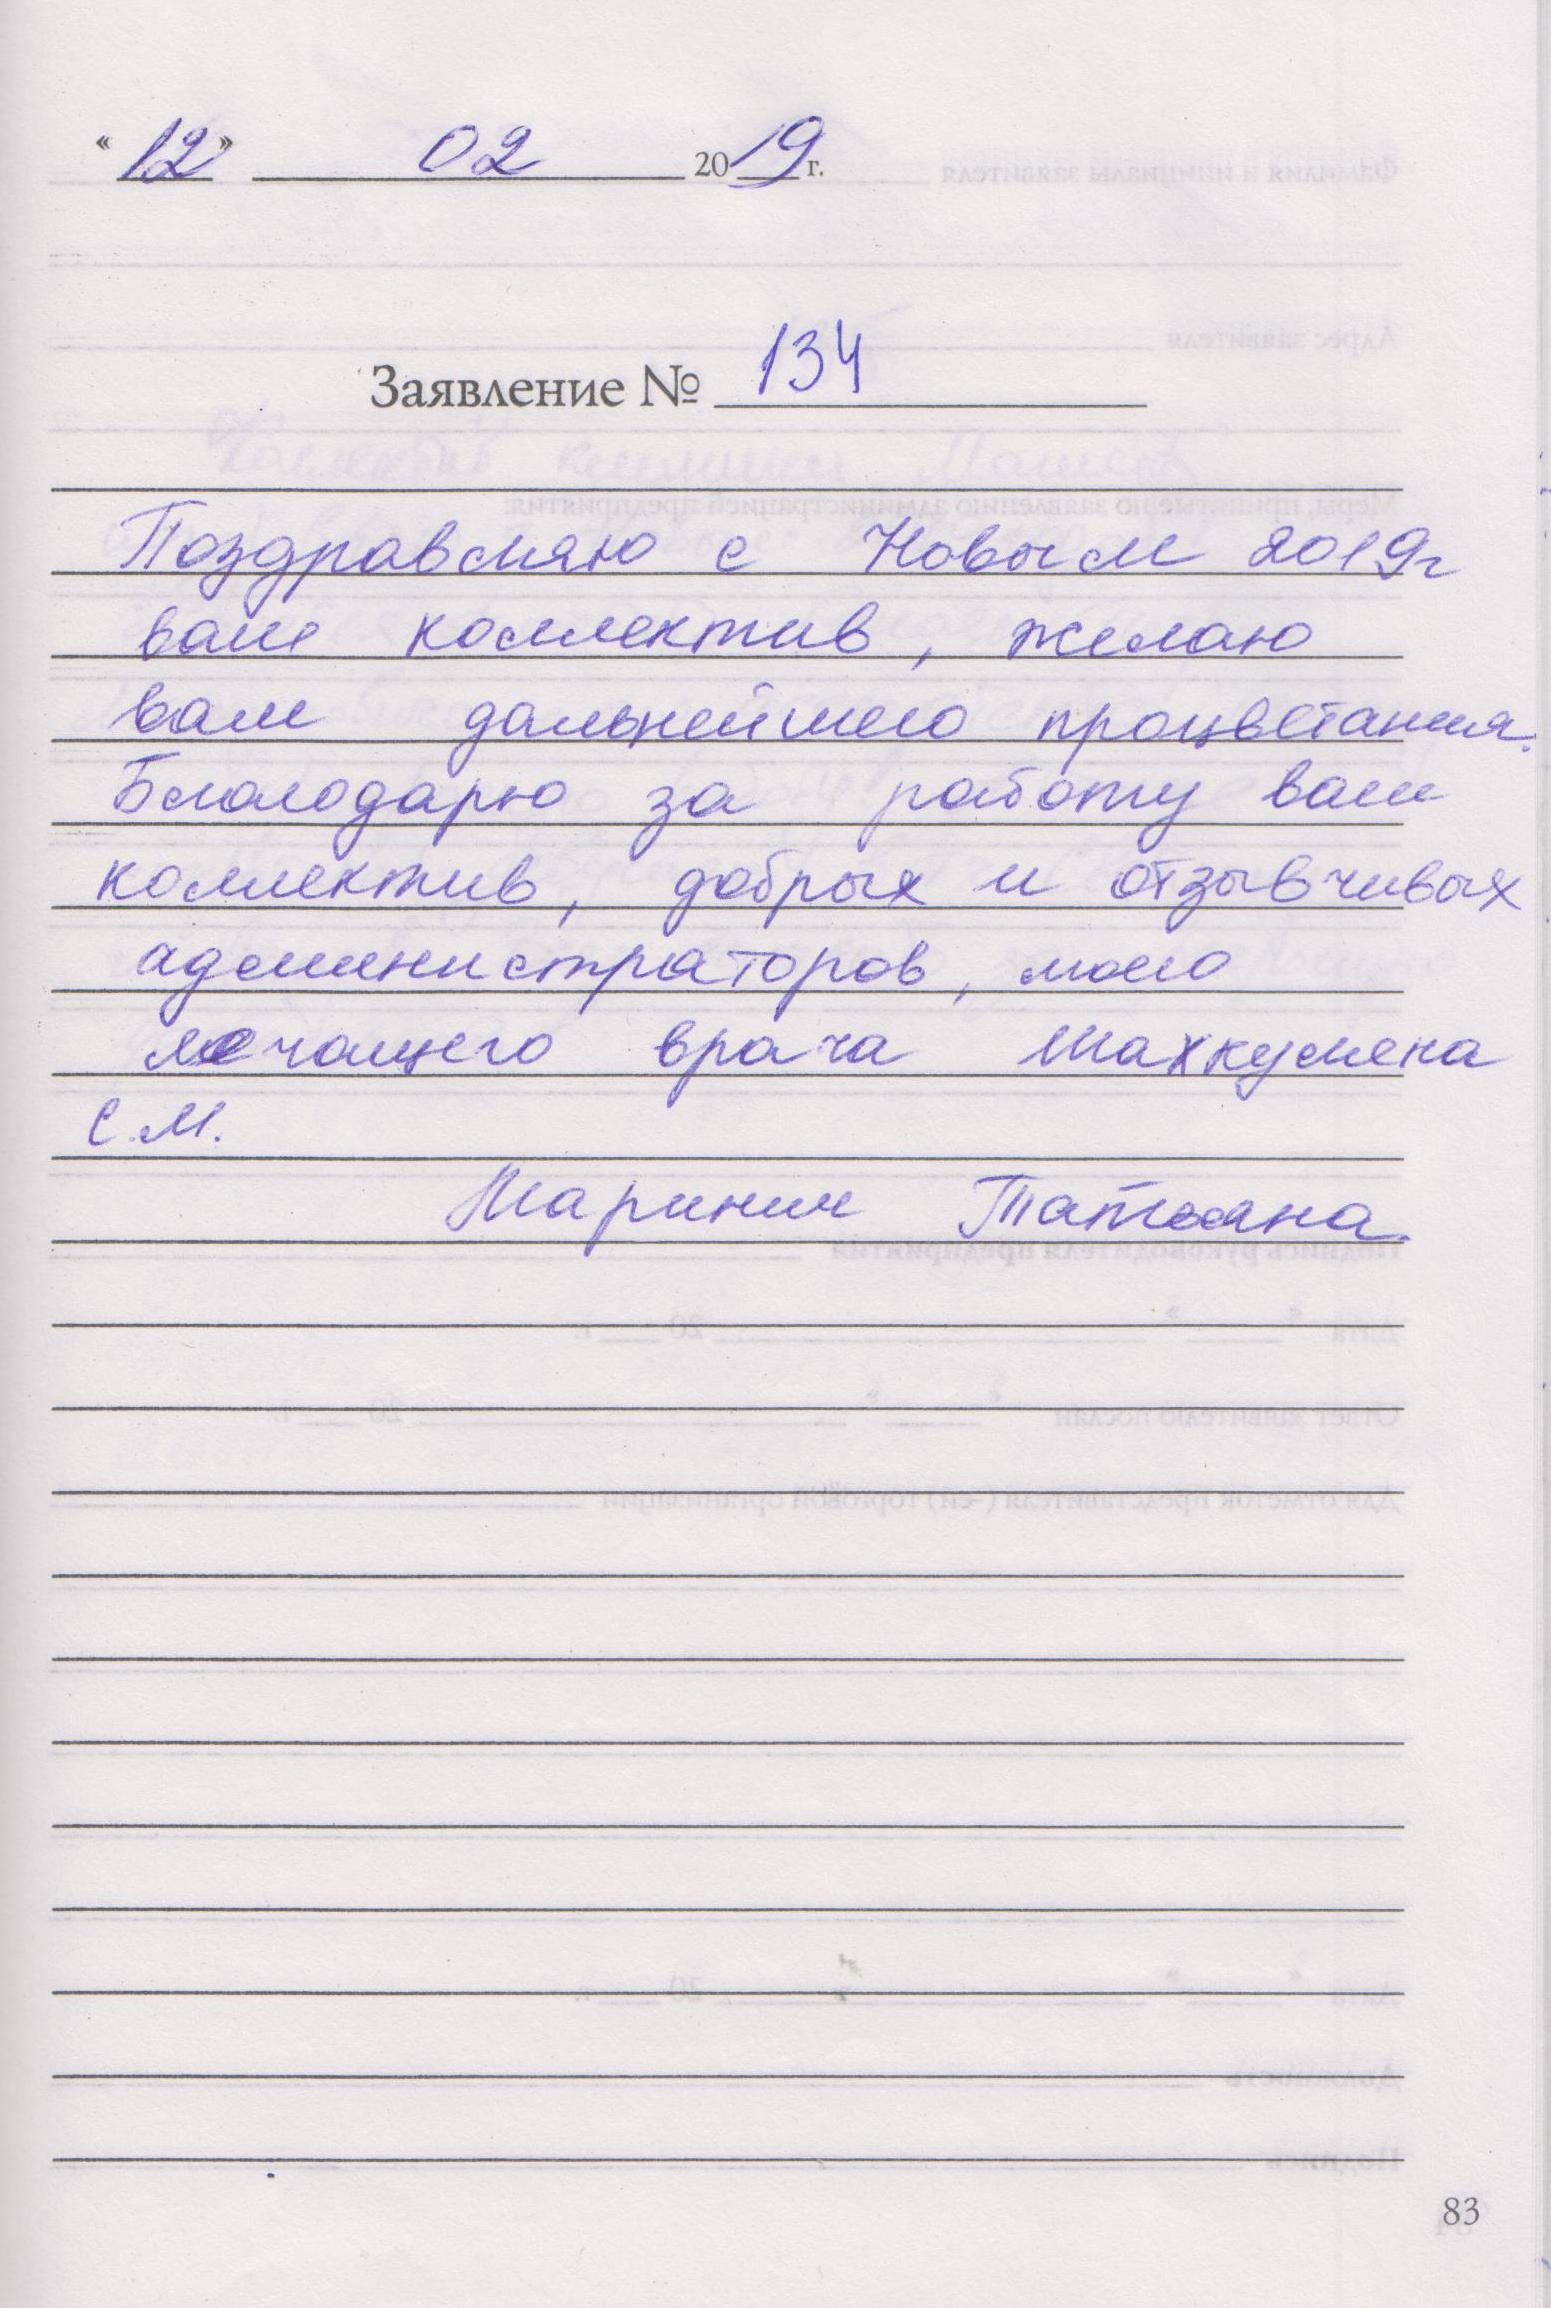 « 12 » 02 2019 г.
Заявление № 134
Поздравляю с Новым 2019г
ваш коллектив, желаю
вам дальнейшего процветания.
Благодарю за работу ваш
коллектив, добрых и отзывчивых
администраторов, моего
лечащего врача
С.М.
Татьяна.
83